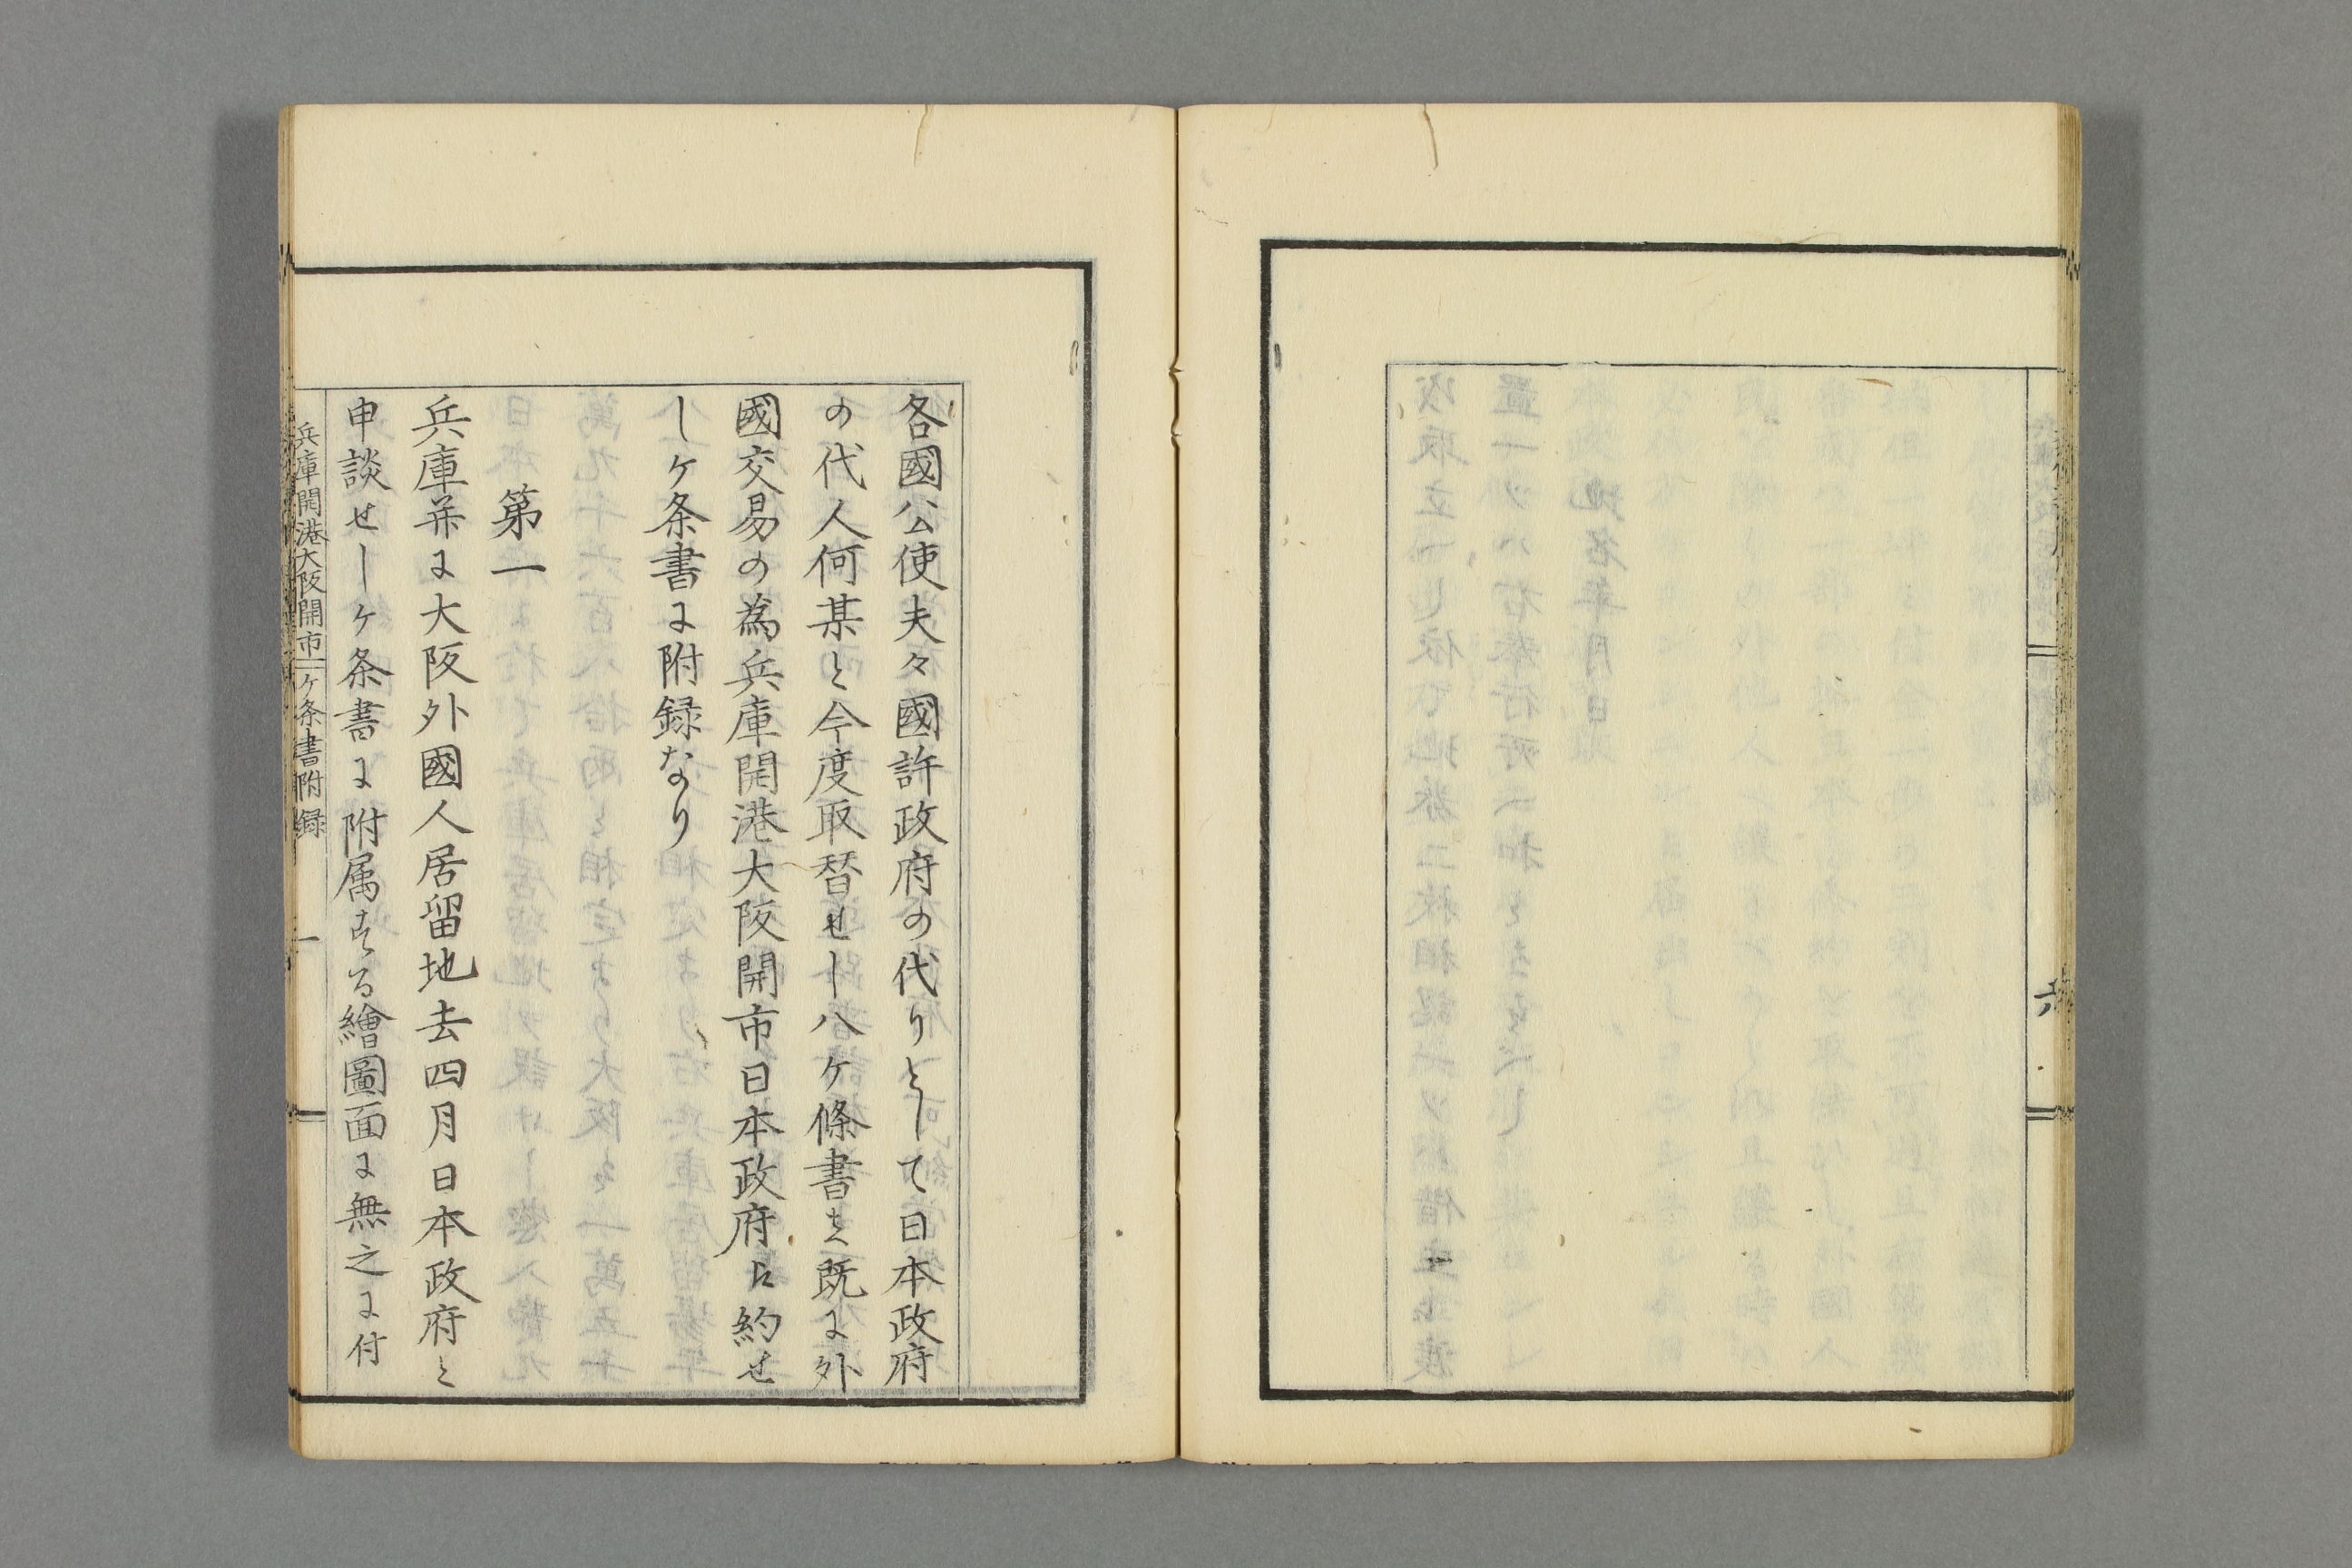 六
各國公使夫々國許政府の代りとして日本政府
の代人何某と今度取替せし八ヶ條書は既に外
國交易の為兵庫開港大阪開市日本政府ゟ約せ
しヶ条書に附録なり
第一
兵庫并に大阪外國人居留地去四月日本政府と
申談せしヶ条書に附属する繪圖面に無之に付
兵庫開港大阪開市ヶ条書附録
一